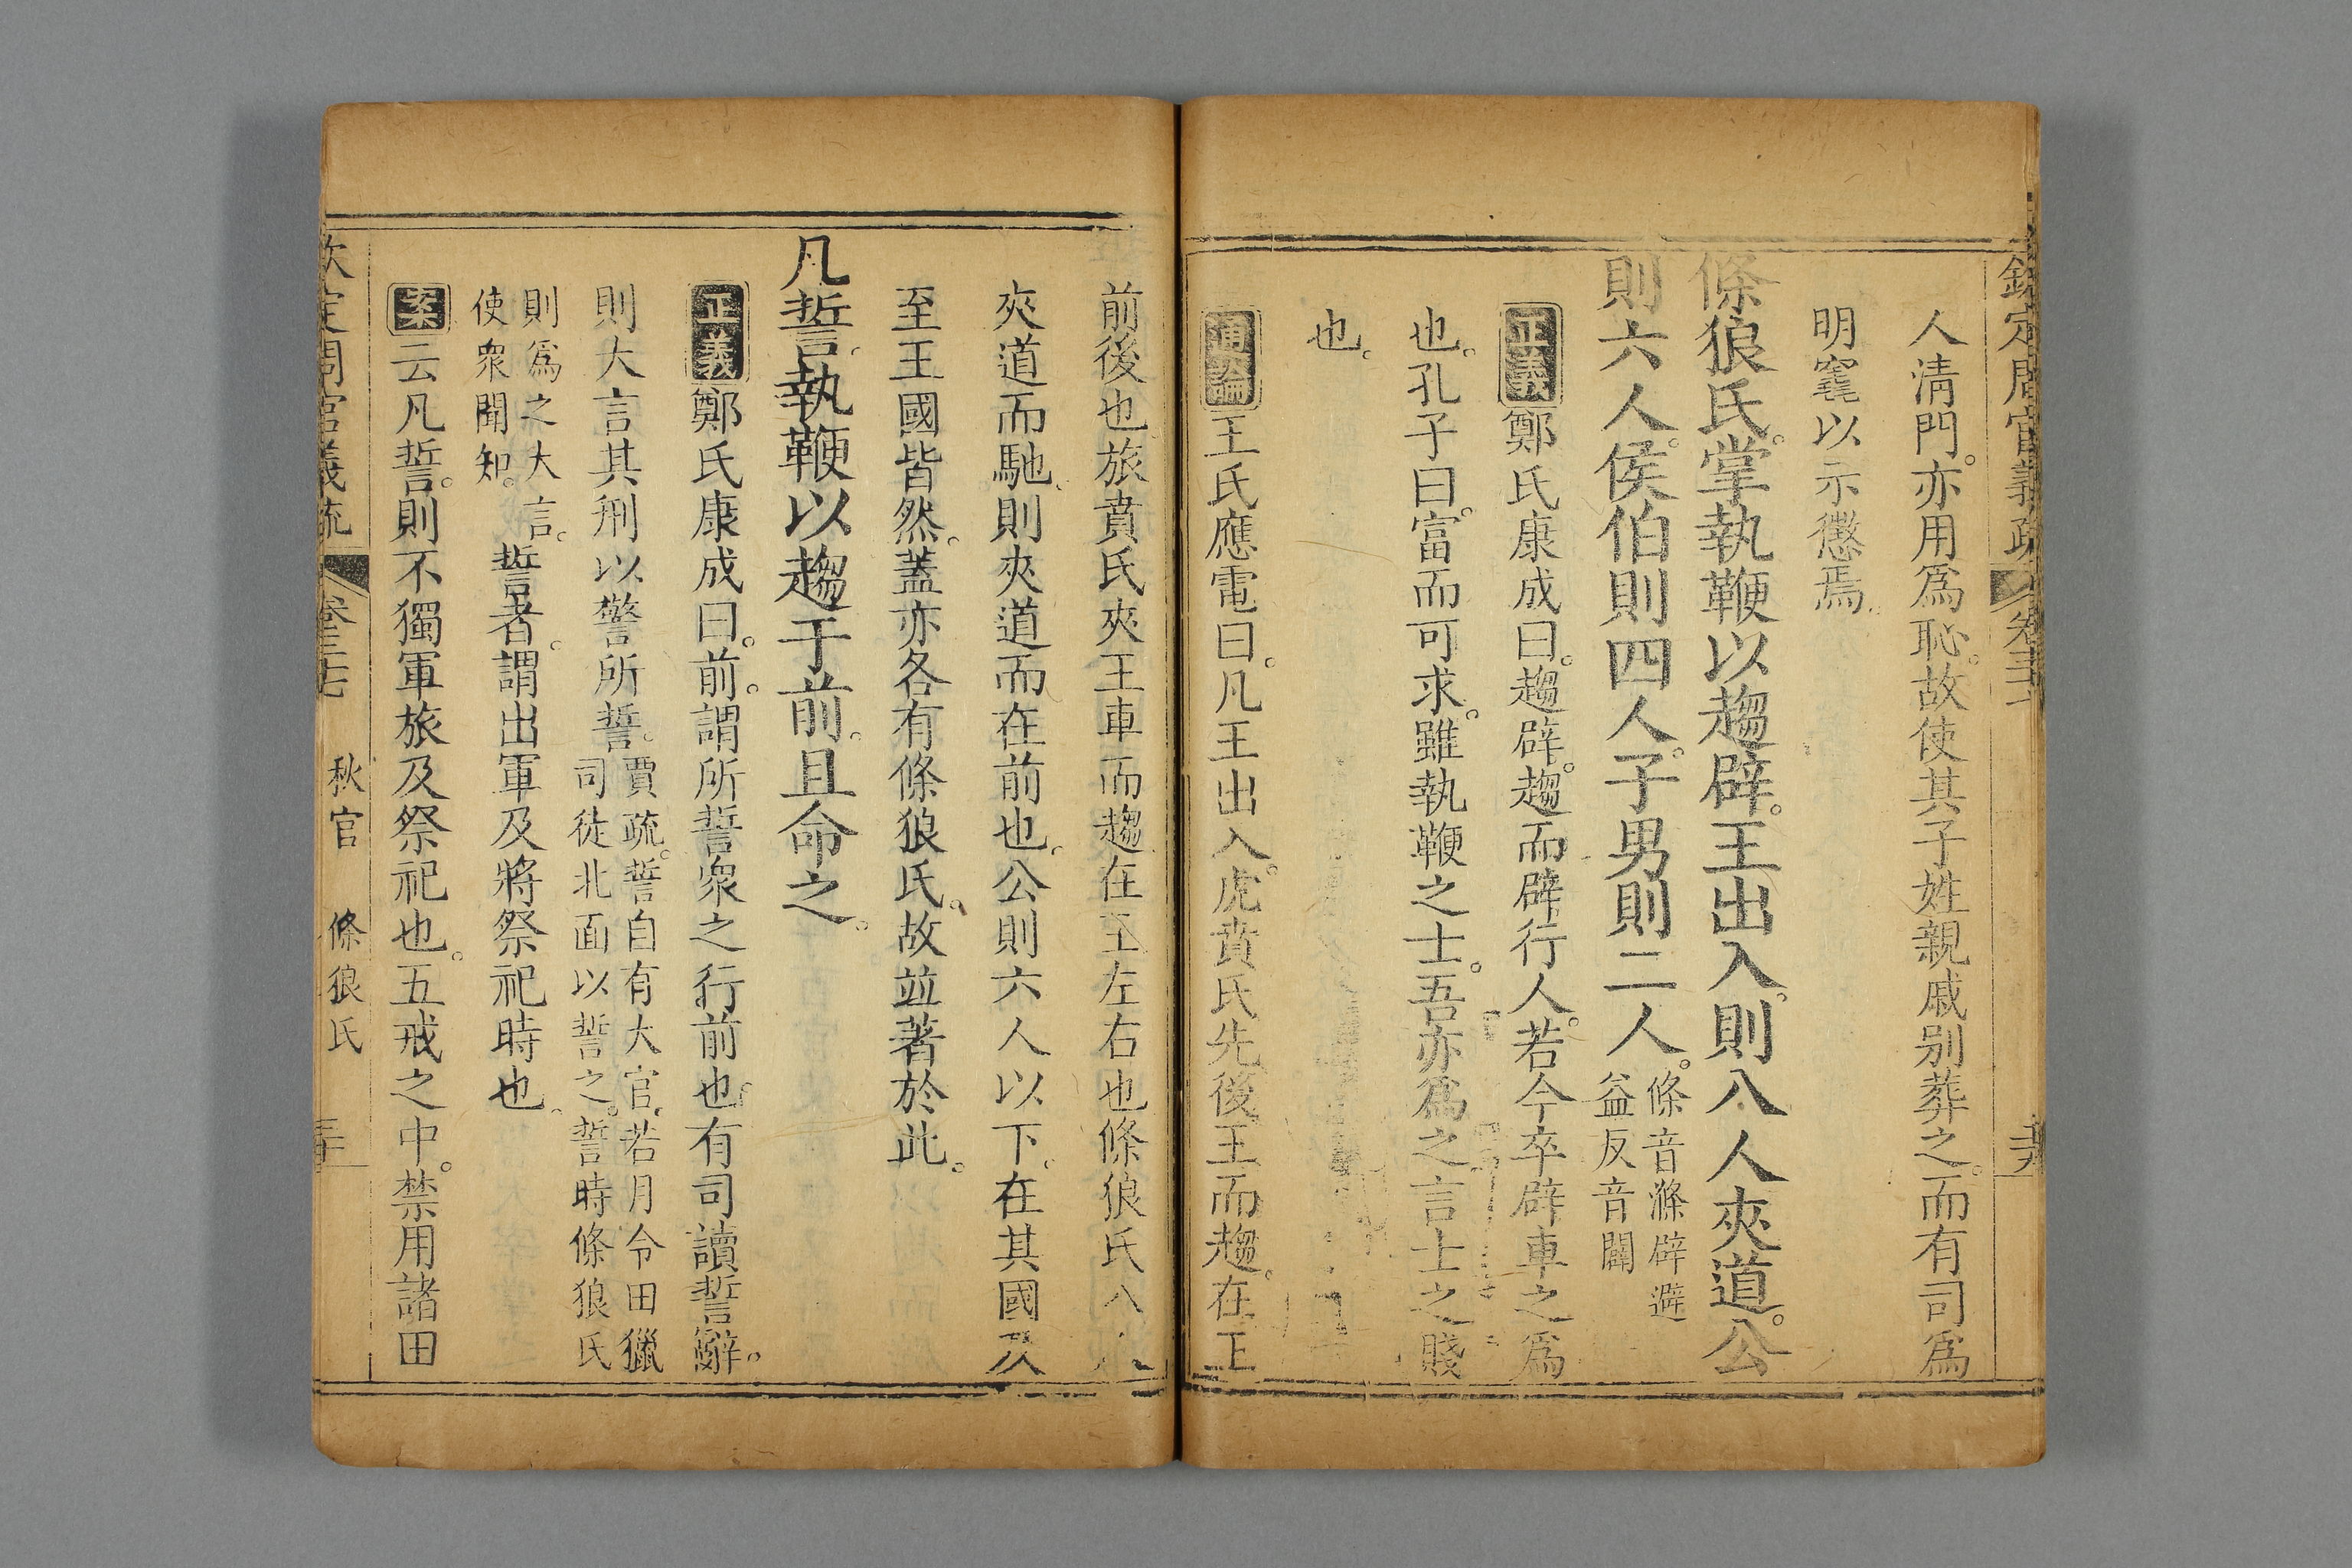 欽定周官義疏 卷三十七
人淸門。亦用爲恥。故使其子姓親戚别葬之。而有司爲
明竁以示懲焉。
條狼氏。掌執鞭以趨辟。王出入。則八人夾道。公
則六人。侯伯則四人。子男則二人。條音滌辟避
益反音闢
正義鄭氏康成曰。趨辟。趨而辟行人。若今卒辟車之爲
也。孔子曰。富而可求。雖執鞭之士。吾亦爲之。言士之賤
也。
通論王氏應電曰。凡王出入。虎賁氏先後王而趨。在王
前後也。旅賁氏夾王車而趨在王左右也條狼氏八人
夾道而馳。則夾道而在前也。公則六人以下。在其國及
至王國皆然。蓋亦各有條狼氏。故並著於此。
凡誓。執鞭以趨于前。且命之。
正義鄭氏康成曰。前。謂所誓衆之行前也。有司讀誓辭。
則大言其刑以警所誓。賈疏。誓自有大官。若月令田獵
司徒北面以誓之。誓時條狼氏
則爲之大言。
使衆聞知。誓者。謂出軍及將祭祀時也。
案云凡誓。則不獨軍旅及祭祀也。五戒之中。禁用諸田
欽定周官義疏 卷三十七 秋官 條狼氏 三十